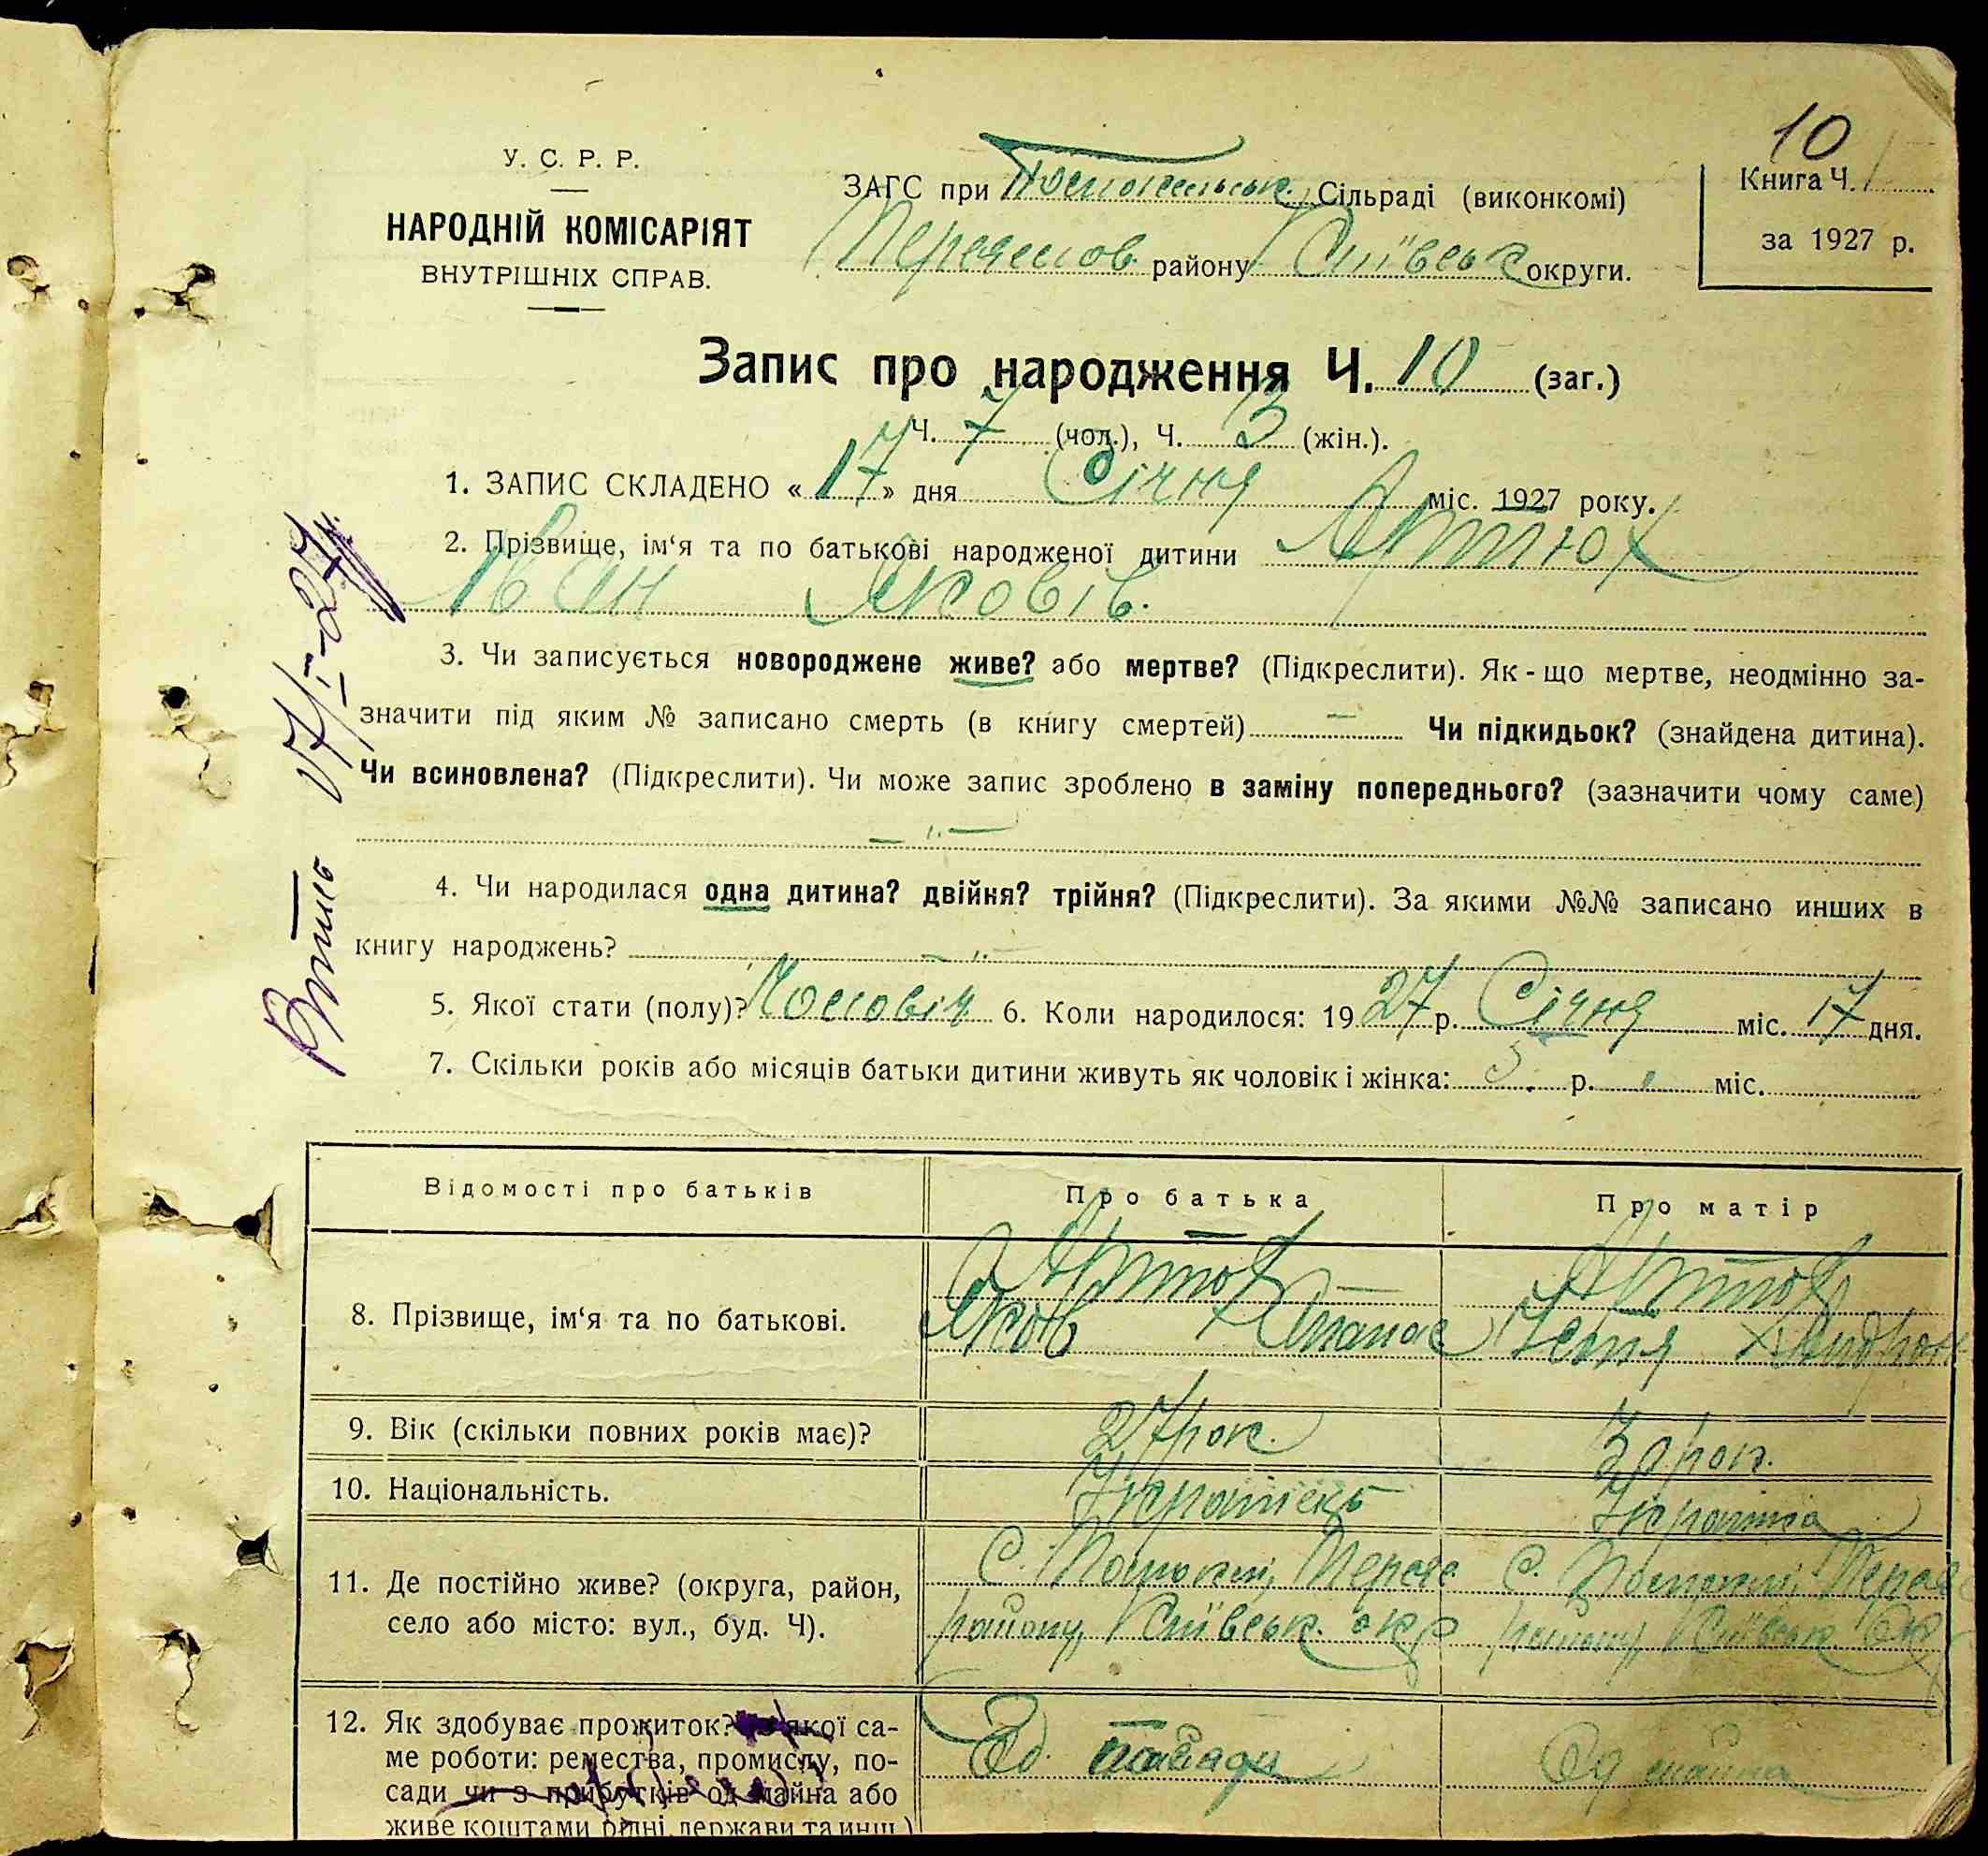 10
У. С. Р. Р.
НАРОДНІЙ КОМІСАРІЯТ
ВНУТРІШНІХ СПРАВ.
ЗАГС при Сільраді (виконкомі)
району Київськ округи.
Книга Ч. 1
за 1927 р.
Запис про народження Ч. 10 (заг.)
Ч. 7 (чол.), Ч. 3 (жін.).
1. ЗАПИС СКЛАДЕНО « 17 » дня Січня міс. 1927 року.
2. Прізвище, ім‘я та по батькові народженої дитини Артюх
Іван Яковів.
3. Чи записується новороджене живе? або мертве? (Підкреслити). Як - що мертве, неодмінно за-
значити під яким № записано смерть (в книгу смертей) — Чи підкидьок? (знайдена дитина).
Чи всиновлена? (Підкреслити). Чи може запис зроблено в заміну попереднього? (зазначити чому саме)
— „ —
4. Чи народилася одна дитина? двійня? трійня? (Підкреслити). За якими №№ записано инших в
книгу народжень? — „
5. Якої стати (полу)? Чоловіч. 6. Коли народилося: 19 27 р. Січня міс. 17 дня.
7. Скільки років або місяців батьки дитини живуть як чоловік і жінка: 5 р. „ міс.
Відомості про батьків Про батька Про матір
8. Прізвище, ім‘я та по батькові.
Артюх Артюх
Яков Опанас
9. Вік (скільки повних років має)? 27 рок. 30 рок.
10. Національність. Українець Українка
11. Де постійно живе? (округа, район,
село або місто: вул., буд. Ч).
району, Київськ. окр району, Київськ окр
12. Як здобуває прожиток? з якої са-
ме роботи: ремества, промислу, по-
сади чи з прибутків од майна або
живе коштами рідні, держави та инш.)
Од Од майна
17/I-27